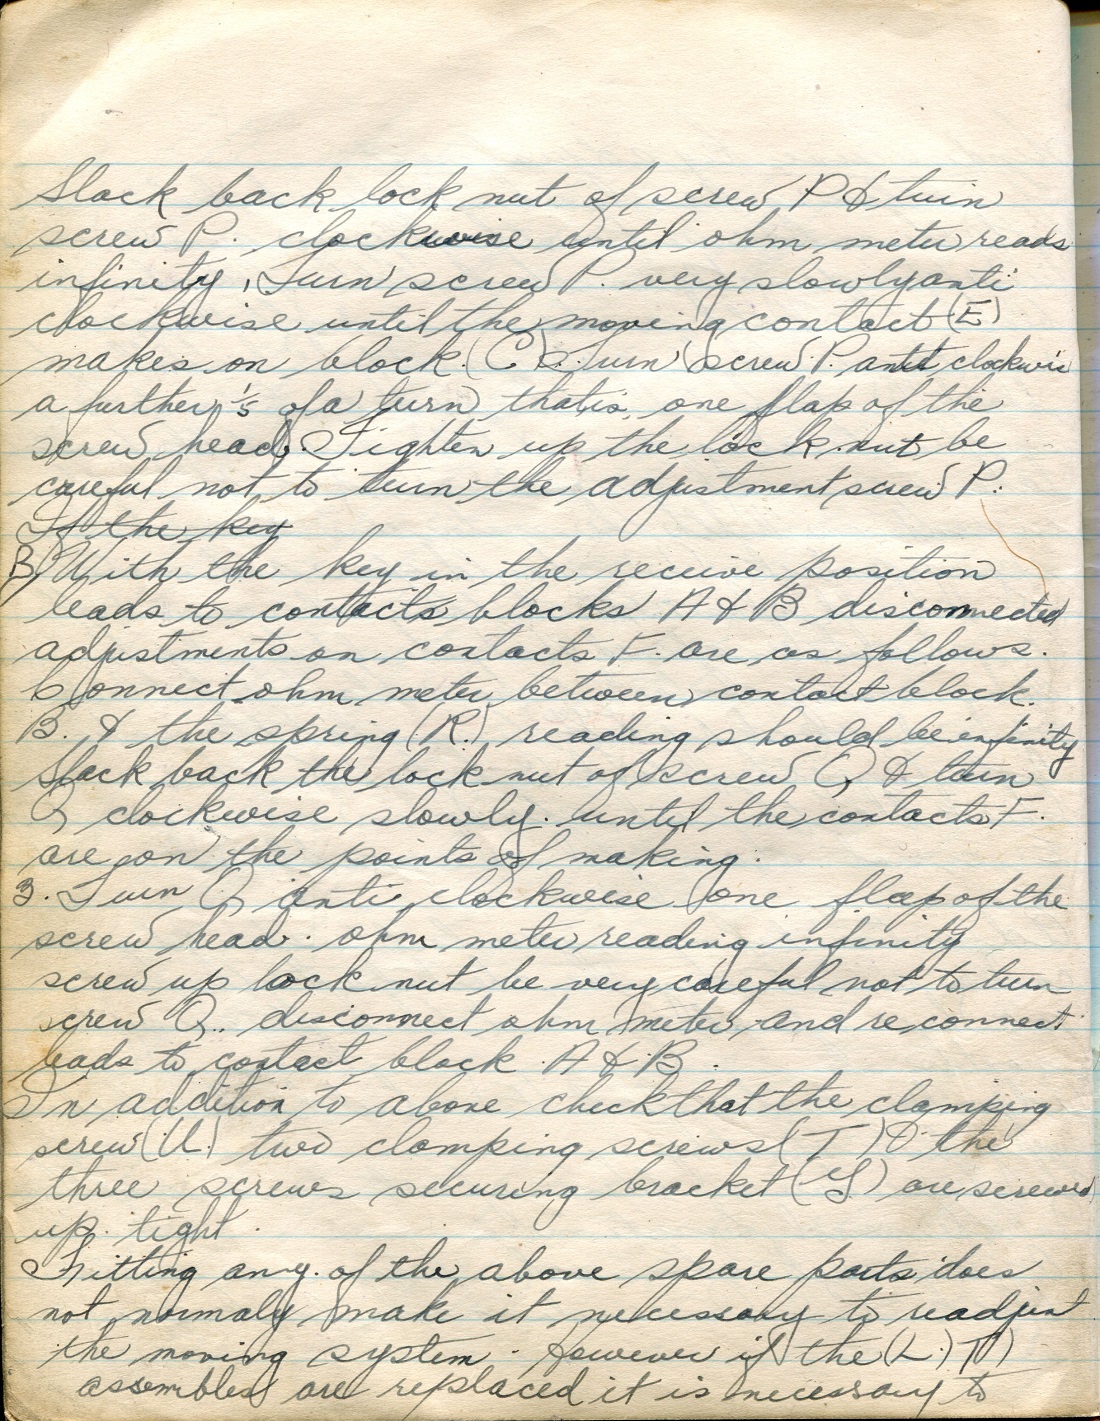 Slack back lock nut of screw P & turn
screw P. clockwise until ohm meter reads
infinity, Turn screw P. very slowly anti
clockwise until the moving contact (E)
makes on block. (C) & Turn screw P. anti clockwis
a further of a turn that is, one flap of the
screw head. Tighten up the lock nut be
careful not to turn the adjustment screw P.
If the key
B) With the key in the receive position
leads to contacts blocks A & B disconnected
adjustments on contacts F. are as follows.
Connect ohm meter between contact block.
B. & the spring (R.) reading should be infinity
Slack back the lock nut of screw Q & turn
Q clockwise slowly. until the contacts F.
are on the points of making.
3. Turn Q anti clockwise one flap of the
screw head. ohm meter reading infinity
screw up lock nut be very careful not to turn
screw Q.. disconnect ohm meter and re connect
leads to contact block A & B.
In addition to above check that the clamping
screw (U.) two clamping screws (T) & the
three screws securing bracket (Y) are screwed
up tight.
Fitting any. of the above spare parts does
not normaly make it necessary to readjust
the moving system. However if the (L.)
assembles are replaced it is necessary to